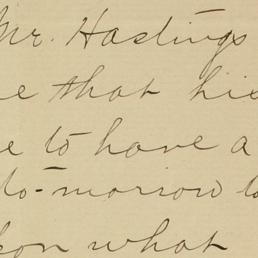 Mr. Hastings
that his
to have a
to-morrow
what